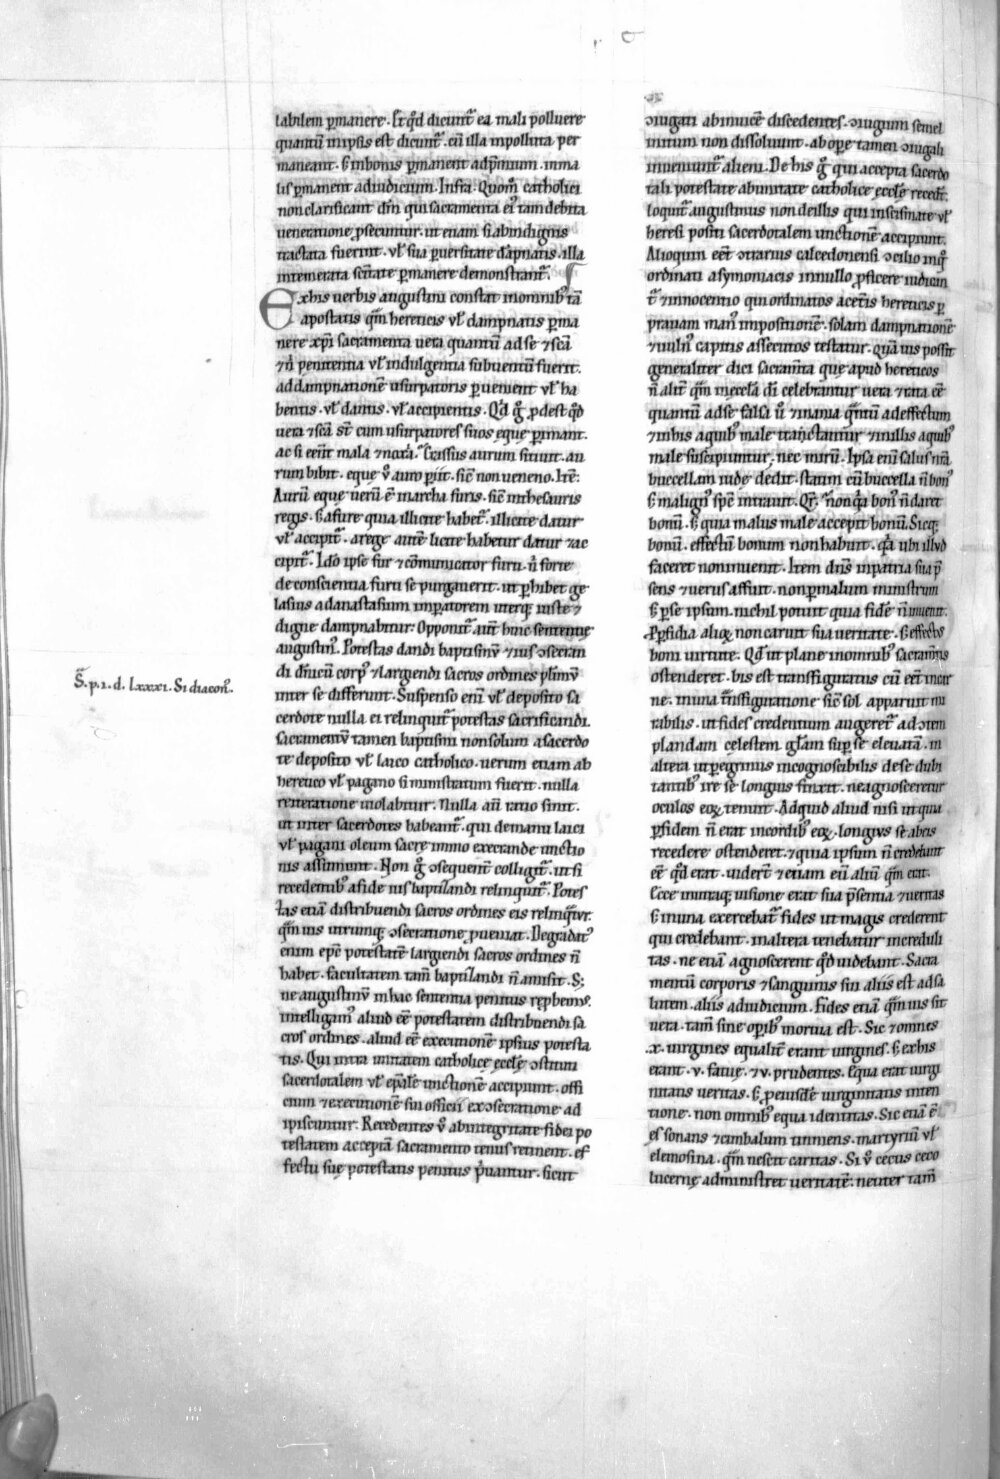 labilem p̄manere. Et qd̄ dicunt̄ ea mali polluere
quantū inipsis est dicunt̄. cū illa inpolluta per
maneant. s; inbonis p̄manent adp̄mium. inma
lis p̄manent adiudicium. Infra. Quom̄ catholici
non clarificant dn̄m qui sacramenta ei' tam debita
ueneratione ꝓsecuntur. ut etiam si abindignis
tractata fuerint. ul̄ sua puersitate dāpnatis. illa
intemerata sc̄itate p̄manere demonstrant̄.
Exhis uerbis augustini constat inomnib' tā
apostatis qm̄ hereticis ul̄ dampnatis p̄ma
nere xp̄i sacramenta uera quantū adse ⁊ scā
⁊ n̄ penitentia ul̄ indulgentia subuentū fuerit.
ad dampnationē usurpatoris p̄ueniunt ul̄ ha
bentis. ul̄ dantis. ul̄ accipientis. Qd̄ g̊ ꝓdest qd̄
uera ⁊ scā st̄ cum usurpatores suos eque p̄imant.
ac si eēnt mala ⁊ noxia. Crassus aurum sitiuit. au
rum bibit. eque ů auro p̄iit. sic̄ non ueneno. Itē.
Aurū eque uerū ē inarcha furis. sic̄ inthesauris
regis. s; afure quia illicite habet̄. illicite datur
ul̄ accipit̄. arege autē licite habetur datur ⁊ ac
cipit̄. Ido ipse fur ⁊ cōmunicator furu. n̄ forte
de conscientia furu se purgauerit. ut ꝓhibet ge
lasius adanastasium imp̄atorem uterq; iuste ⁊
digne dampnabitur. Opponit̄ aūt huic sententie
augustini. Potestas dandi baptismū ⁊ ius ↄsecran
di dn̄icū corp' ⁊ largiendi sacros ordines pl̄imū
inter se differunt. Suspenso enī ul̄ deposito sa
cerdote nulla ei relinquit̄ potestas sacrificandi.
sacramentū tamen baptismi nonsolum asacerdo
te deposito ul̄ laico catholico. uerum etiam ab
heretico ul̄ pagano si ministratum fuerit. nulla
reiteratione uiolabitur. Nulla aūt ratio sinit.
ut inter sacerdotes habeant̄. qui demanu laici
ul̄ pagani oleum sacre immo execrande unctio
nis assumunt. Non g̊ ↄsequent̄ colligit̄. ut si
recedentib' afide ius baptizandi relinquit̄. Potes
tas etiā distribuendi sacros ordines eis relinqt̄ur.
qm̄ ius utrumq; ↄsecratione ꝓueniat. Degradat'
enim epc̄ potestatē largiendi sacros ordines n̄
habet. facultatem tam̄ baptizandi n̄ amisit. S;
ne augustinū inhac sententia penitus rep̄hēns.
intelligam' aliud eē potestatem distribuendi sa
cros ordines. aliud eē executionē ipsius potesta
tis. Qui intra unitatem catholice eccl̄e ↄstituti
sacerdotalem ul̄ ep̄alē unctionē accipiunt. offi
cium ⁊ executionē sui officii exↄsecratione ad
ipiscuntur. Recedentes ů abintegritate fidei po
testatem acceptā sacramento tenus retinent. ef
fectu sue potestatis penitus p̄uantur. sicut
S̄. p. 1. d. lxxxi. Si diacon'.
ↄiugati abinuicē discedentes. ↄiugium semel
initum non dissoluunt. abope tamen ↄiugali
inueniunt̄ alieni. De his g̊ qui accepta sacerdo
tali potestate abunitate catholice eccl̄e recedt̄.
loquit̄ augustinus non deillis qui inscismate ul̄
heresi positi sacerdotalem unctionē accipiunt.
Alioquin eēt ↄtrarius calcedonensi ↄcilio inq̊
ordinati asymoniacis innullo ꝓficere iudican
t̄ ⁊ innocentio qui ordinatos acet̄is hereticis p̄
prauam man' impositionē. solam dampnationē
⁊ uuln' capitis assecutos testatur. Quāuis possit
generaliter dici sacram̄ta que apud hereticos
n̄ alit̄ qm̄ inęccl̄a dī celebrantur uera ⁊ rata eē
quantū adse falsa ū ⁊ inania qm̄tū adeffectum
⁊ inhis aquib' male tractantur ⁊ inillis aquib'
male suscipiuntur, nec mirū. Ipsa enī salus nr̄a
buccellam iude dedit. statim cū buccella n̄ bon'
s; malign' spē intrauit. Qr̄. non qā bon' n̄ daret
bonū. s; quia malus male accepit bonū. Sicq;
bonū. effectū bonum nonhabuit. qā ubi illud
faceret noninuenit. Item dn̄s inpatria sua p̄
sens ⁊ uerus affuit. non p̄malum ministrum
s; p̄ se ipsum. nichil potuit quia fidē n̄ inuenit.
Perfidia aliqꝫ non caruit sua ueritate. s; effectus
boni uirtute. Qd̄ ut plane inomnib' sacram̄tis
ostenderet. bis est transfiguratus cū eēt incar
ne. inuna t̄nsfiguratione sic̄ sol apparuit mi
rabilis. ut fides credentium augeret̄ ad ↄtem
plandam celestem gl̄am sup̄ se eleuatā. in
altera ut p̄egrinus incognoscibilis dese dubi
tantib' ire se longius finxit. ne agnosceretur
oculos eoꝝ tenuit. Adquid aliud nisi ut quia
p̄fidem n̄ erat incordib' eoꝝ. longius se abeis
recedere ostenderet. ⁊ quia ipsum n̄ credebant
eē qd̄ erat. uiderēt ⁊ etiam eū aliū qm̄ erat.
Ecce inutraq; uisione erat sua p̄sentia ⁊ ueritas
s; inuna exercebat̄ fides ut magis crederent
qui credebant. inaltera tenebatur increduli
tas. ne etiā agnoscerent qd̄ uidebant. Sacra
mentū corporis ⁊ sanguinis sui aliis est adsa
lutem. aliis adiudicium. Fides etiā qm̄uis sit
uera. tam̄ sine opib' mortua est. Sic ⁊ omnes
.x. uirgines equalit̄ erant uirgines. s; exhis
erant. v. fatue. ⁊ v. prudentes. Equa erat uirgi
nitatis ueritas. s; ꝓ eiusdē uirginitatis inten
tione. non omnib' equa idenitas. Sic etiā ē
es sonans ⁊ cimbalum tinniens. martyriū ul̄
elemosina. qm̄ nescit caritas. Si ů cecus ceco
lucerne administret ueritatē. neuter tam̄